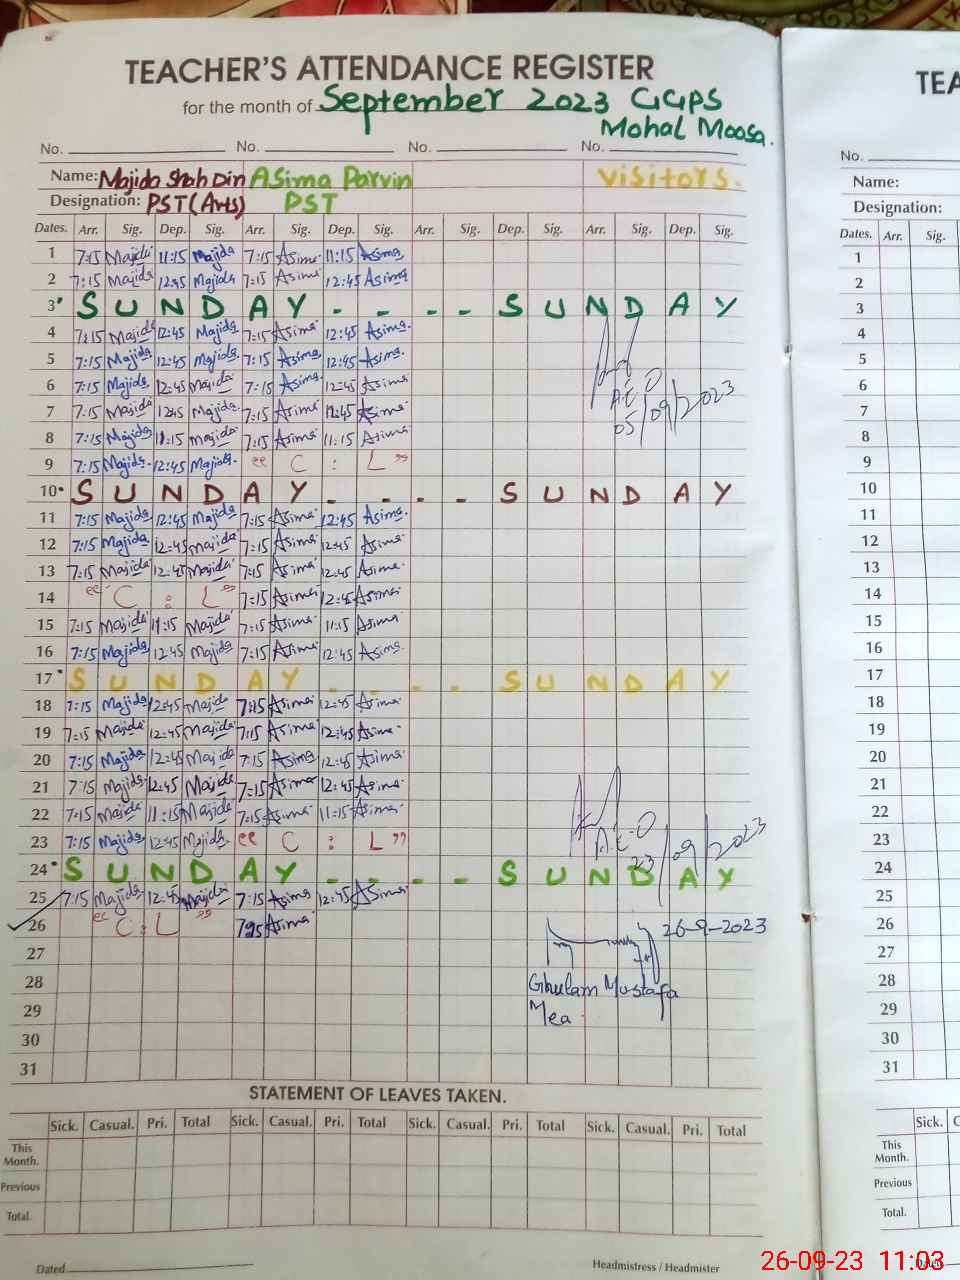 TEACHER'S ATTENDANCE REGISTER
for the month of September 2023 GGPS
Mohal Moosa.
No. No. No. No.
Name: Majida Shah Din Asima Parvin visitors.
Designation: PST (Arts) PST
Dates. Arr. Sig. Dep. Sig. Arr. Sig. Dep. Sig. Arr. Sig. Dep. Sig. Arr. Sig. Dep. Sig.
1 7:15 Majida 11:15 Majida 7:15 Asima 11:15 Asima
2 7:15 Majida 12:45 Majida 7:15 Asima 12:45 Asima
3 S U N D A Y - - - - S U N D A Y
4 7:15 Majida 12:45 Majida 7:15 Asima 12:45 Asima
5 7:15 Majida 12:45 Majida 7:15 Asima 12:45 Asima
6 7:15 Majida 12:45 Majida 7:15 Asima 12:45 Asima
A.E.O
7 7:15 Majida 12:45 Majida 7:15 Asima 12:45 Asima
05/09/2023
8 7:15 Majida 11:15 Majida 7:15 Asima 11:15 Asima
9 7:15 Majida 12:45 Majida "C : L"
10 S U N D A Y - - - - S U N D A Y
11 7:15 Majida 12:45 Majida 7:15 Asima 12:45 Asima
12 7:15 Majida 12:45 Majida 7:15 Asima 12:45 Asima
13 7:15 Majida 12:45 Majida 7:15 Asima 12:45 Asima
14 "C : L" 7:15 Asima 12:45 Asima
15 7:15 Majida 11:15 Majida 7:15 Asima 11:15 Asima
16 7:15 Majida 12:45 Majida 7:15 Asima 12:45 Asima
17 S U N D A Y - - - - S U N D A Y
18 7:15 Majida 12:45 Majida 7:15 Asima 12:45 Asima
19 7:15 Majida 12:45 Majida 7:15 Asima 12:45 Asima
20 7:15 Majida 12:45 Majida 7:15 Asima 12:45 Asima
21 7:15 Majida 12:45 Majida 7:15 Asima 12:45 Asima
22 7:15 Majida 11:15 Majida 7:15 Asima 11:15 Asima
23 7:15 Majida 12:45 Majida "C : L"
A.E.O
23/09/2023
24 S U N D A Y - - - - S U N D A Y
25 7:15 Majida 12:45 Majida 7:15 Asima 12:45 Asima
26 "C : L" 7:15 Asima 26-9-2023
27
28 Ghulam Mustafa
29 Mea
30
31
STATEMENT OF LEAVES TAKEN.
Sick. Casual. Pri. Total Sick. Casual. Pri. Total Sick. Casual. Pri. Total Sick. Casual. Pri. Total
This Month.
Previous
Total.
Dated Headmistress / Headmister
No.
Name:
Designation:
Dates. Arr. Sig.
1
2
3
4
5
6
7
8
9
10
11
12
13
14
15
16
17
18
19
20
21
22
23
24
25
26
27
28
29
30
31
Sick.
This Month.
Previous
Total.
26-09-23 11:03